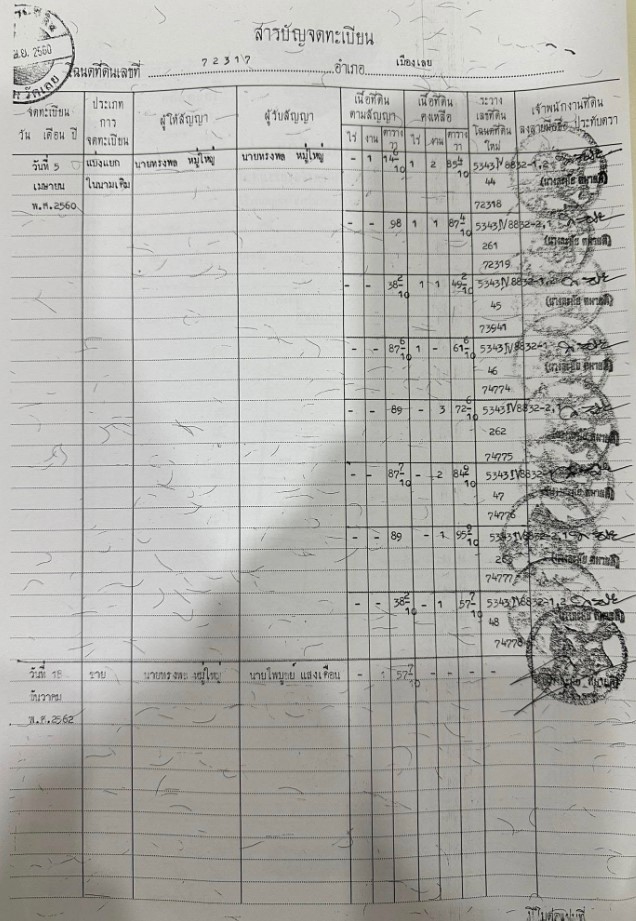 สารบัญจดทะเบียน
โฉนดที่ดินเลขที่ 72317 อำเภอ เมืองเลย
จดทะเบียน วัน เดือน ปี
ประเภท การ จดทะเบียน
ผู้ให้สัญญา
ผู้รับสัญญา
เนื้อที่ดิน ตามสัญญา
ไร่ งาน ตาราง วา
เนื้อที่ดิน คงเหลือ
ไร่ งาน ตาราง วา
ระวาง เลขที่ดิน โฉนดที่ดิน ใหม่
เจ้าพนักงานที่ดิน ลงลายมือชื่อ ประทับตรา
วันที่ 5 แบ่งแยก นายทรงพล หมู่ใหญ่ นายทรงพล หมู่ใหญ่ - 1 1 2 5343 IV 8832-1,2
เมษายน ในนามเดิม 44
พ.ศ.2560 72318
- - 98 1 1 87 4/10 5343 IV 8832-2,1
261
72319
- - 38 2/10 1 1 49 2/10 5343 IV 8832-1,2
45
73941
- - 87 6/10 1 - 61 6/10 5343 IV 8832-1
46
74774
- - 89 - 3 72 6/10 5343 IV 8832-2,1
262
74775
- - 87 7/10 - 2 84 9/10 5343 IV 8832-1
47
74776
- - 89 - 1 95 9/10 5343 IV 8832-2,1
74777
- - 38 2/10 - 1 57 7/10 5343 IV 8832-1,2
48
74778
วันที่ ขาย นายทรงพล หมู่ใหญ่ นายไพบูลย์ แสงเดือน - 1 57 7/10 - - - -
ธันวาคม
พ.ศ.2562